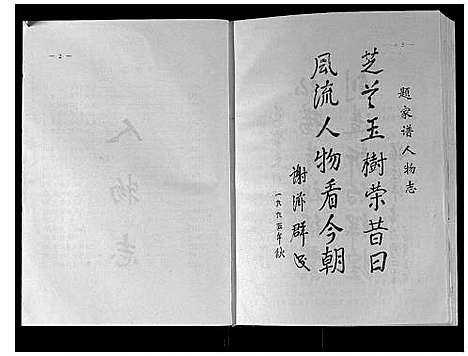 — 3 —
题家谱人物志
芝兰玉樹荣昔日
風流人物看今朝
谢济群
一九九五年秋
— 2 —
人物志